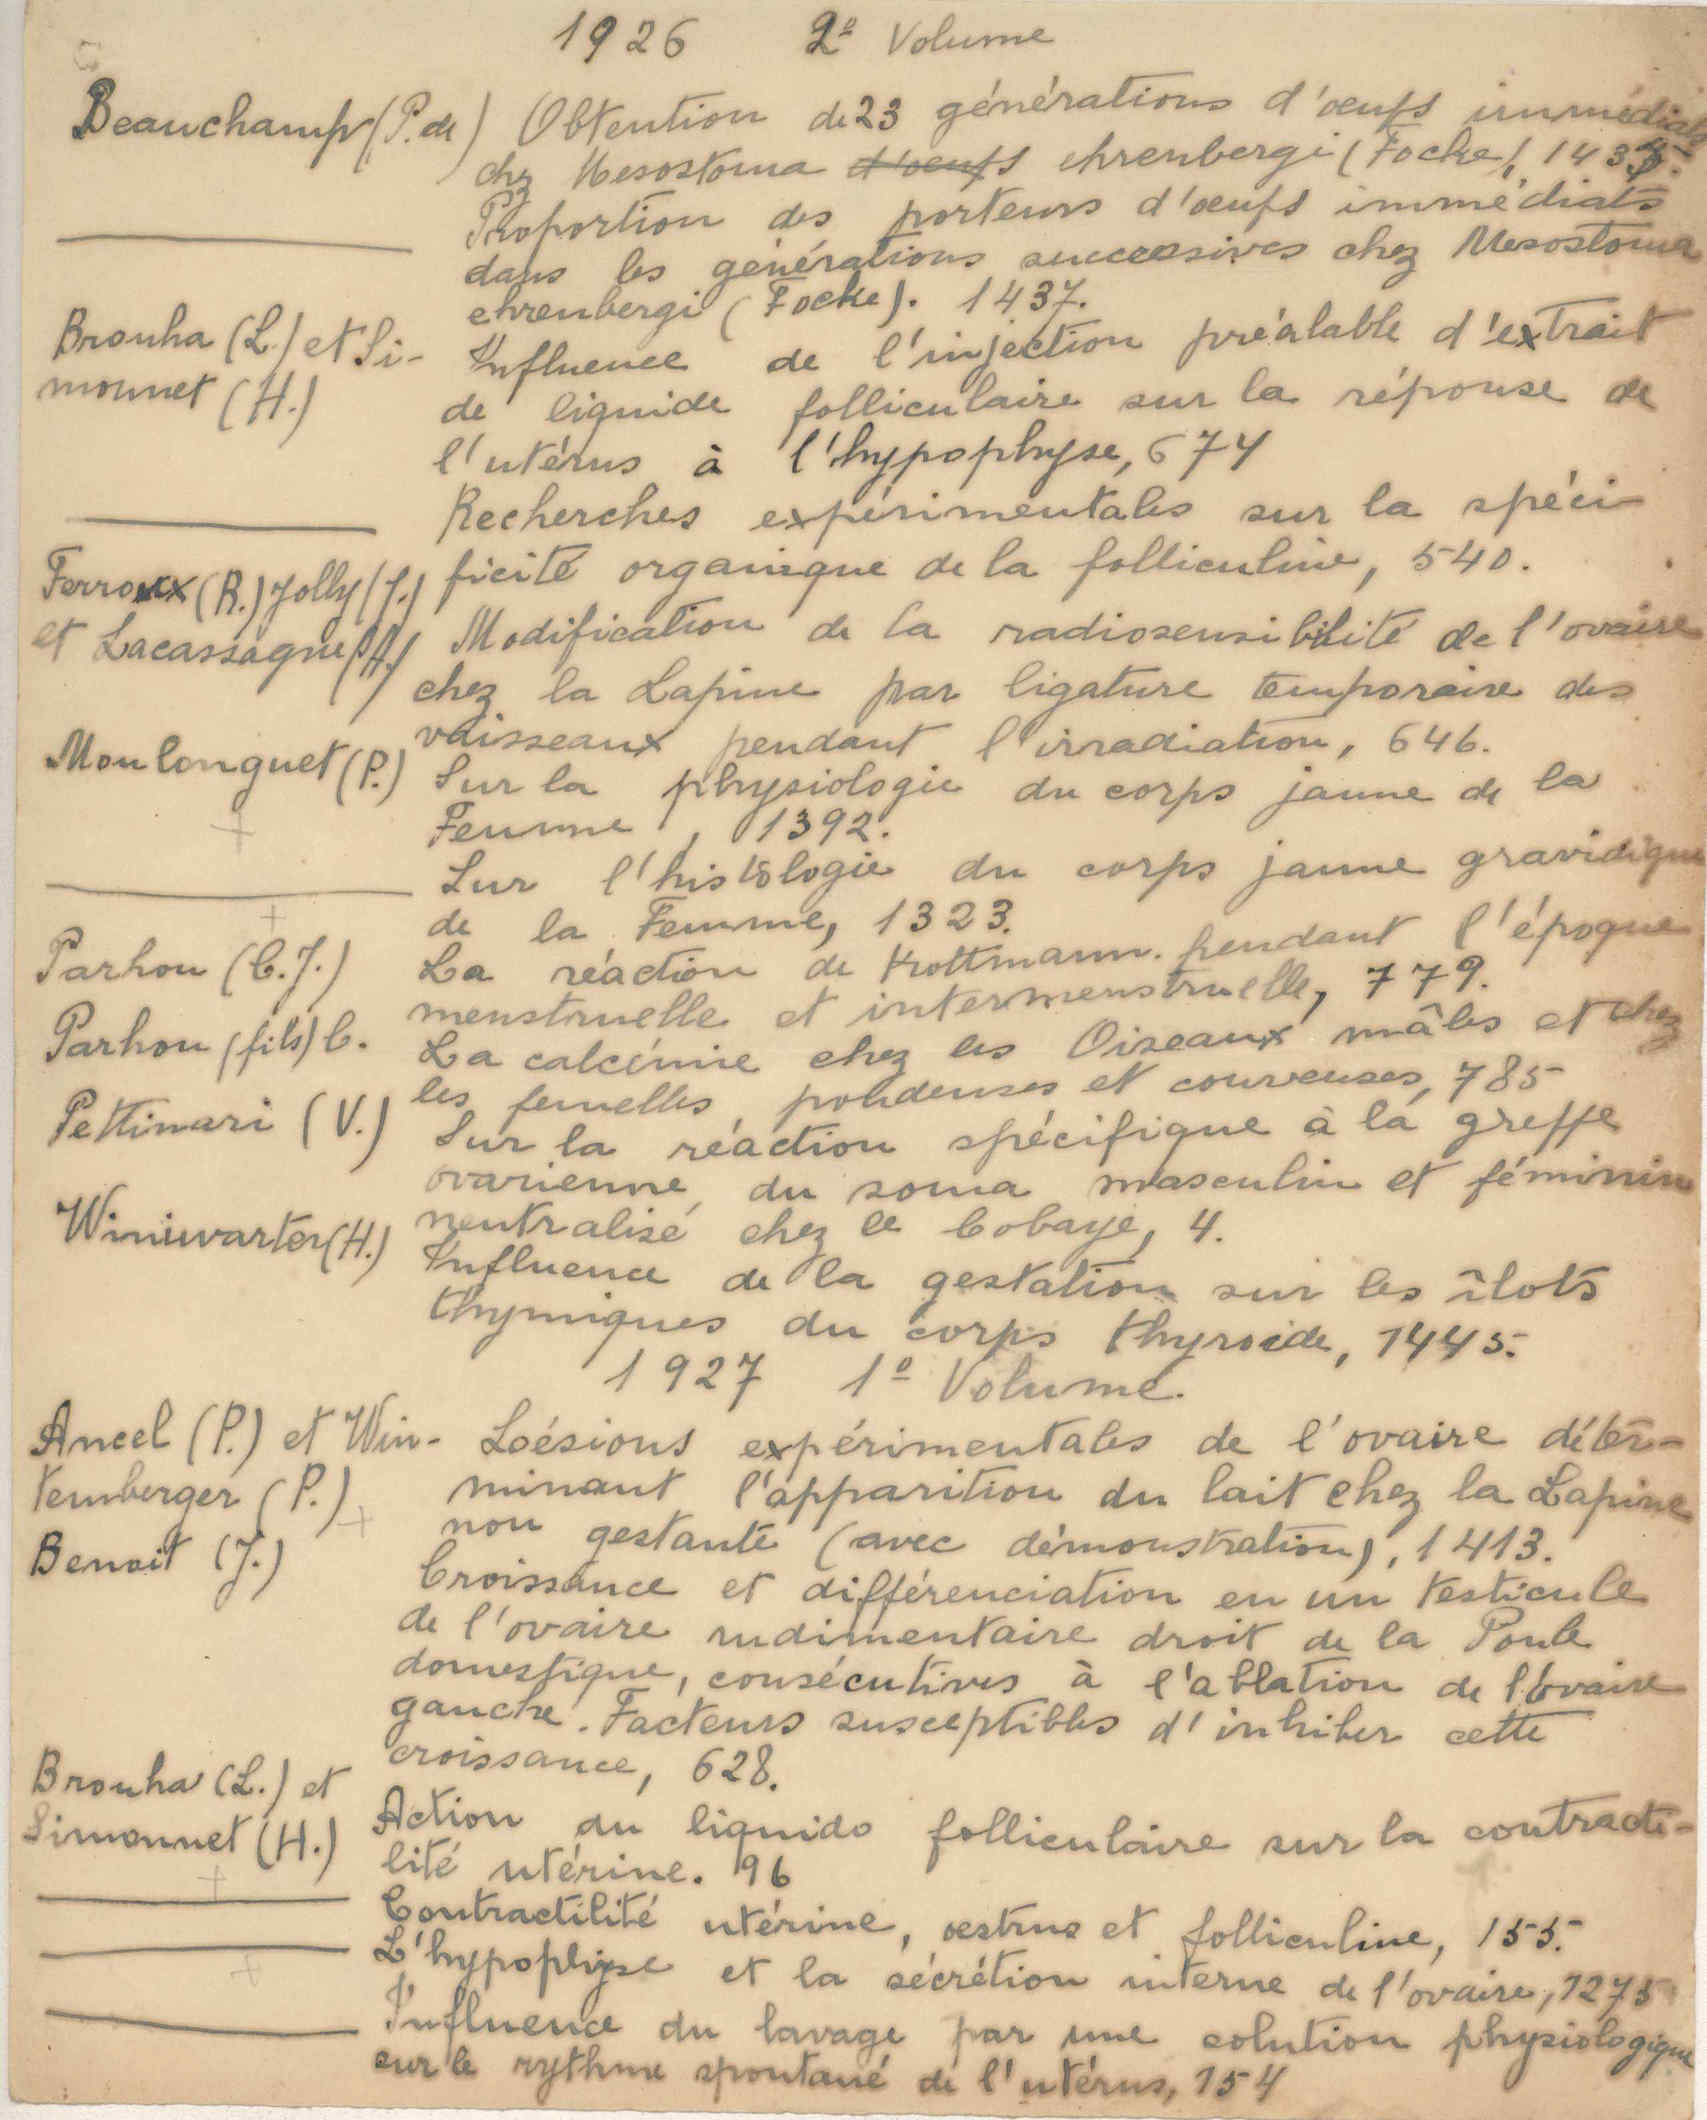 1926 2º Volume
Beauchamp (P. de) Obtention de 23 générations d'œufs immédiats
chez Mesostoma d'œufs ehrenbergi (Focke), 1435.
Proportion des porteurs d'œufs immédiats
dans les générations successives chez Mesostoma
ehrenbergi (Focke). 1437.
Brouha (L.) et Si- Influence de l'injection préalable d'extrait
monnet (H.) de liquide folliculaire sur la réponse de
l'utérus à l'hypophyse, 674
Recherches expérimentales sur la spéci-
ficité organique de la folliculine, 540.
Ferroux (R.) Jolly (J.)
et Lacassagne (A.) Modification de la radiosensibilité de l'ovaire
chez la Lapine par ligature temporaire des
vaisseaux pendant l'irradiation, 646.
Moulonguet (P.) Sur la physiologie du corps jaune de la
Femme, 1392.
Sur l'histologie du corps jaune gravidique
de la Femme, 1323.
Parhon (C. J.) La réaction de Kottmann pendant l'époque
menstruelle et intermenstruelle, 779.
Parhon (fils) C. La calcémie chez les Oiseaux mâles et chez
les femelles pondeuses et couveuses, 785
Pettinari (V.) Sur la réaction spécifique à la greffe
ovarienne du soma masculin et féminin
neutralisé chez le Cobaye, 4.
Winiwarter (H.) Influence de la gestation sur les îlots
thymiques du corps thyroide, 1445.
1927 1º Volume.
Ancel (P.) et Win- Loésions expérimentales de l'ovaire déter-
temberger (P.) minant l'apparition du lait chez la Lapine
non gestante (avec démonstration), 1413.
Benoit (J.) Croissance et différenciation en un testicule
de l'ovaire rudimentaire droit de la Poule
domestique, consécutives à l'ablation de l'ovaire
gauche. Facteurs susceptibles d'inhiber cette
croissance, 628.
Brouha (L.) et
Simonnet (H.) Action du liquido folliculaire sur la contracti-
lité utérine. 96
Contractilité utérine, oestrus et folliculine, 155.
L'hypophyse et la sécrétion interne de l'ovaire, 1275
Influence du lavage par une solution physiologique
sur le rythme spontané de l'utérus, 154